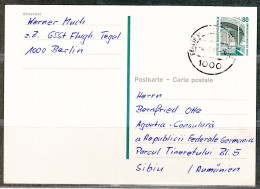 Absender
Werner Huch
z.Z. GSSt Flugh. Tegel
1000 Berlin
80
1000
Postkarte - Carte postale
Herrn
Bernfried Otte
Agentia-Consulară
a Republicii Federale Germania
Parcul Tineretului Bl. 5
Sibiu
(Rumänien